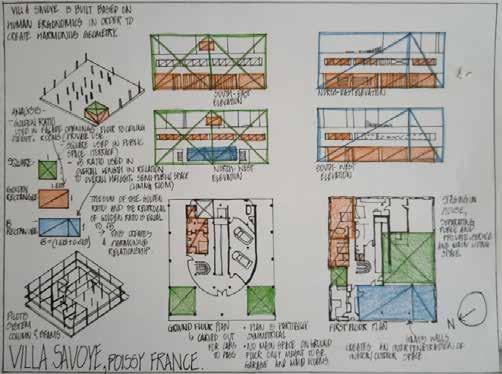 VILLA SAVOYE IS BUILT BASED ON
HUMAN ERGONOMICS IN ORDER TO
CREATE HARMONIUS GEOMETRY.
ANALYSIS -
- GOLDEN RATIO
USED IN FACADE OPENINGS, FLOOR TO CEILING
HEIGHT, ROOMS (PRIVATE USE
- SQUARE USED IN PUBLIC
SPACE (TERRACE)
- √5 RATIO USED IN
OVERALL LENGTH IN RELATION
TO OVERALL HEIGHT, SEMI PUBLIC SPACE
(LIVING ROOM)
SQUARE
GOLDEN
RECTANGLE
√5
RECTANGLE
THE SUM OF THE GOLDEN
RATIO AND THE RECIPROCAL
OF GOLDEN RATIO IS EQUAL
TO √5
THIS CREATES
A HARMONIOUS
RELATIONSHIP
PILOTIS
SYSTEM
COLUMN & BEAMS
SOUTH-EAST
ELEVATION
NORTH-EAST ELEVATION
NORTH-WEST
ELEVATION
SOUTH-WEST
ELEVATION
GROUND FLOOR PLAN
CARVED OUT
FOR CARS
TO PASS
• PLAN IS PARTIALLY
SYMMETRICAL
• NO MAIN SPACE ON GROUND
FLOOR ONLY MEANT TO BE
GARAGE AND MAID ROOMS
FIRST FLOOR PLAN
HOUSE,
SEPARATING
PUBLIC AND
PRIVATE, SERVICE
AND MAIN LIVING
SPACE.
GLASS WALLS
CREATES AN INTERPENETRATION OF
INDOOR/OUTDOOR SPACE
N
VILLA SAVOYE, POISSY FRANCE.